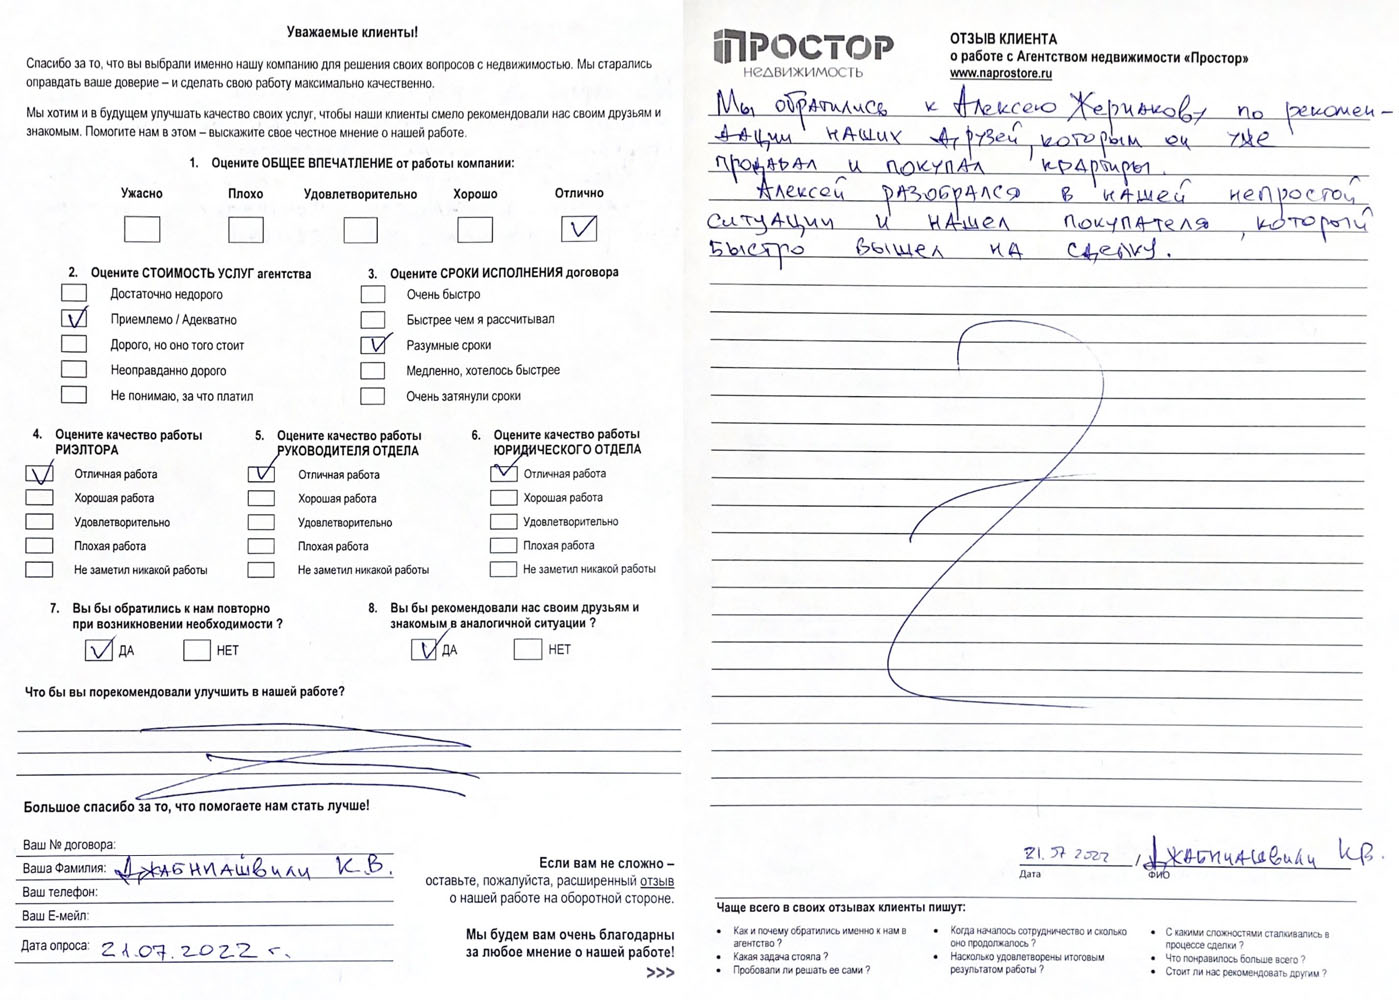 Уважаемые клиенты!
Спасибо за то, что вы выбрали именно нашу компанию для решения своих вопросов с недвижимостью. Мы старались
оправдать ваше доверие – и сделать свою работу максимально качественно.
Мы хотим и в будущем улучшать качество своих услуг, чтобы наши клиенты смело рекомендовали нас своим друзьям и
знакомым. Помогите нам в этом – выскажите свое честное мнение о нашей работе.
1. Оцените ОБЩЕЕ ВПЕЧАТЛЕНИЕ от работы компании:
Ужасно Плохо Удовлетворительно Хорошо Отлично
2. Оцените СТОИМОСТЬ УСЛУГ агентства
Достаточно недорого
Приемлемо / Адекватно
Дорого, но оно того стоит
Неоправданно дорого
Не понимаю, за что платил
3. Оцените СРОКИ ИСПОЛНЕНИЯ договора
Очень быстро
Быстрее чем я рассчитывал
Разумные сроки
Медленно, хотелось быстрее
Очень затянули сроки
4. Оцените качество работы
РИЭЛТОРА
Отличная работа
Хорошая работа
Удовлетворительно
Плохая работа
Не заметил никакой работы
5. Оцените качество работы
РУКОВОДИТЕЛЯ ОТДЕЛА
Отличная работа
Хорошая работа
Удовлетворительно
Плохая работа
Не заметил никакой работы
6. Оцените качество работы
ЮРИДИЧЕСКОГО ОТДЕЛА
Отличная работа
Хорошая работа
Удовлетворительно
Плохая работа
Не заметил никакой работы
7. Вы бы обратились к нам повторно
при возникновении необходимости ?
ДА НЕТ
8. Вы бы рекомендовали нас своим друзьям и
знакомым в аналогичной ситуации ?
ДА НЕТ
Что бы вы порекомендовали улучшить в нашей работе?
Большое спасибо за то, что помогаете нам стать лучше!
Ваш № договора:
Ваша Фамилия: К.В.
Ваш телефон:
Ваш Е-мейл:
Дата опроса: 21.07.2022 г.
Если вам не сложно –
оставьте, пожалуйста, расширенный отзыв
о нашей работе на оборотной стороне.
Мы будем вам очень благодарны
за любое мнение о нашей работе!
>>>
ПРОСТОР
НЕДВИЖИМОСТЬ
ОТЗЫВ КЛИЕНТА
о работе с Агентством недвижимости «Простор»
www.naprostore.ru
Мы обратились к Алексею Жернакову по рекомен-
дации наших друзей, которым он уже
продавал и покупал квартиры.
Алексей разобрался в нашей непростой
ситуации и нашел покупателя, который
быстро вышел на сделку.
21.07 2022 , К.В.
Дата ФИО
Чаще всего в своих отзывах клиенты пишут:
• Как и почему обратились именно к нам в
агентство ?
• Какая задача стояла ?
• Пробовали ли решать ее сами ?
• Когда началось сотрудничество и сколько
оно продолжалось ?
• Насколько удовлетворены итоговым
результатом работы ?
• С какими сложностями сталкивались в
процессе сделки ?
• Что понравилось больше всего ?
• Стоит ли нас рекомендовать другим ?